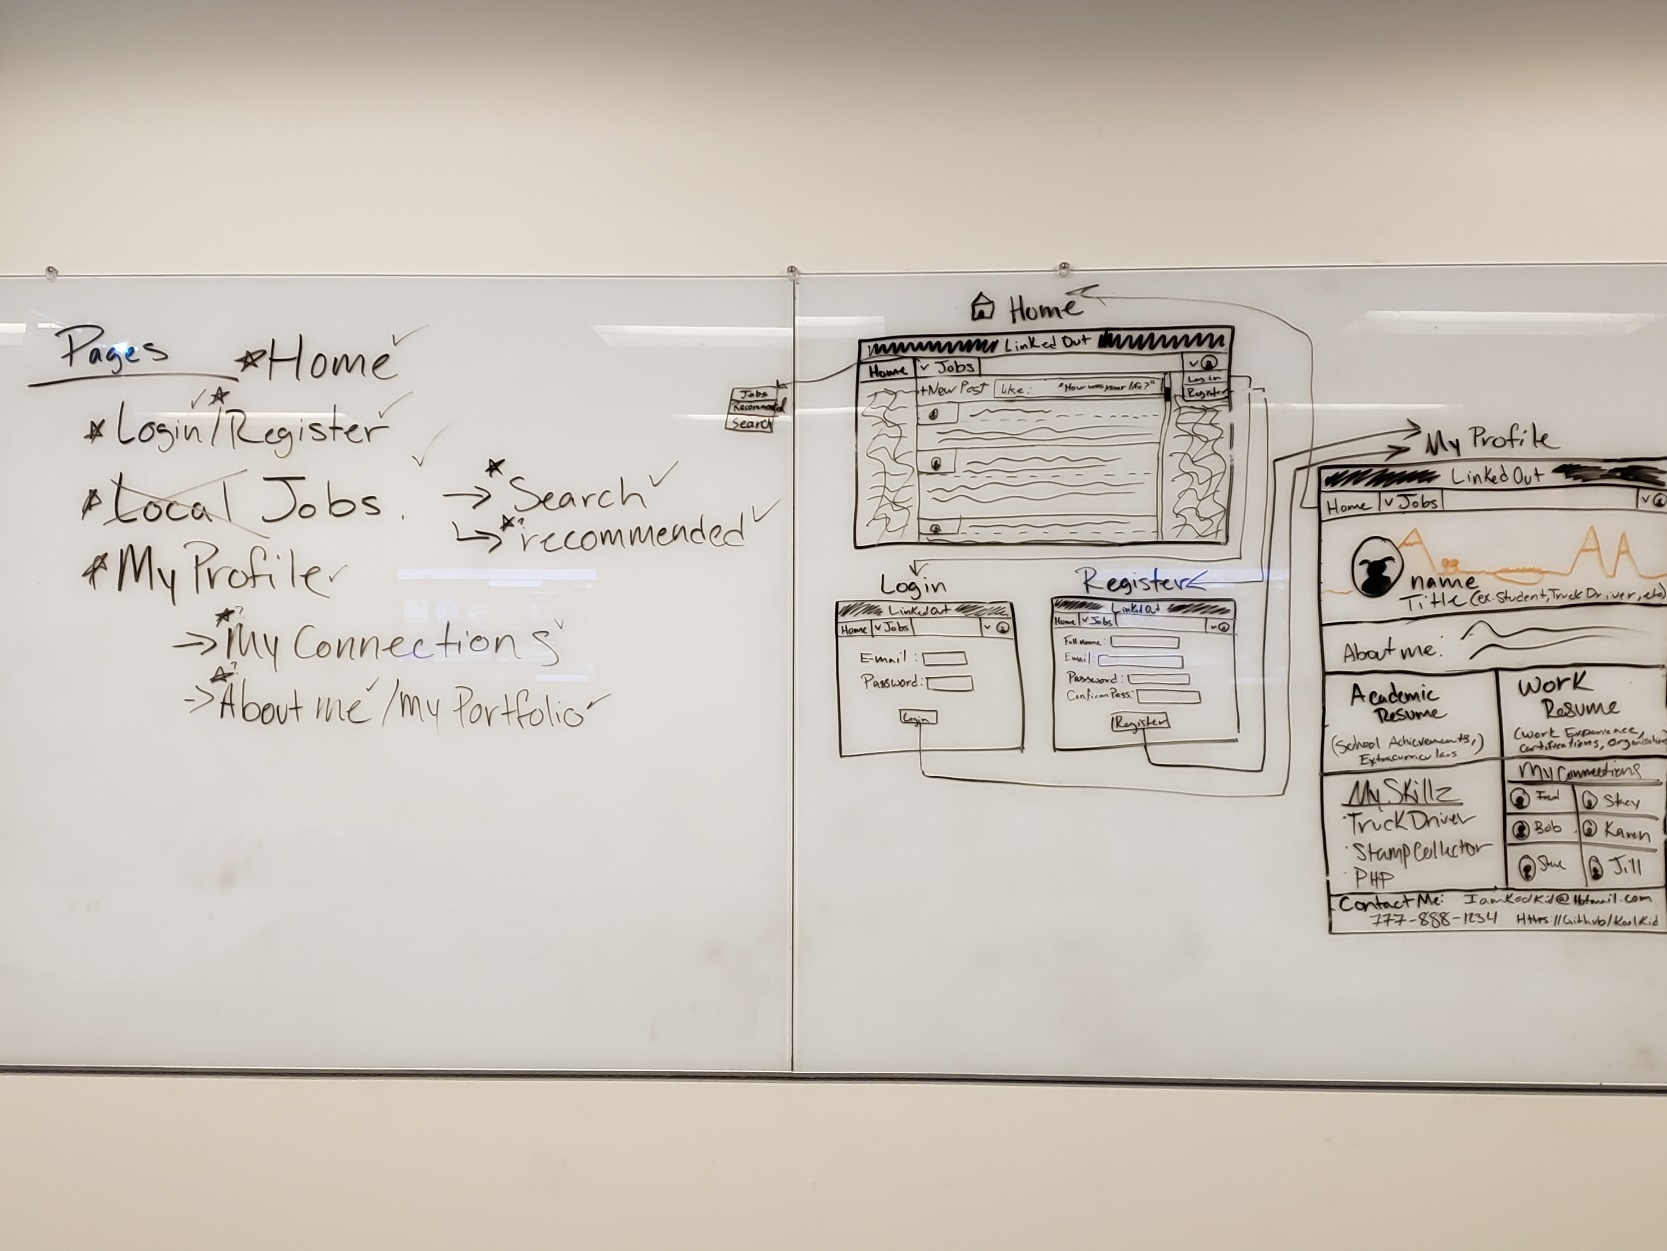 Pages
Home
Login/Register
Local Jobs
Search
recommended
My Profile
My Connections
About me/my Portfolio
Jobs
Recommended
Search
Home
Linked Out
Home
Jobs
Log in
Register
+New Post
Like: "How was your life?"
Login
Linked Out
Home
Jobs
E-mail:
Password:
Login
Register
Linked Out
Home
Jobs
Full name:
Email:
Password:
Confirm Pass:
Register
My Profile
Linked Out
Home
Jobs
name
Title (ex. Student, Truck Driver, etc)
About me:
Academic
Resume
(School Achievements,)
Extracurriculars
Work
Resume
(Work Experience,
Certifications,
My Skillz
Truck Driver
Stamp Collector
PHP
My Connections
Fred
Bob
Karen
Jill
Contact Me: IamKoolKid@Hotmail.com
777-888-1234 Https://Github/KoolKid